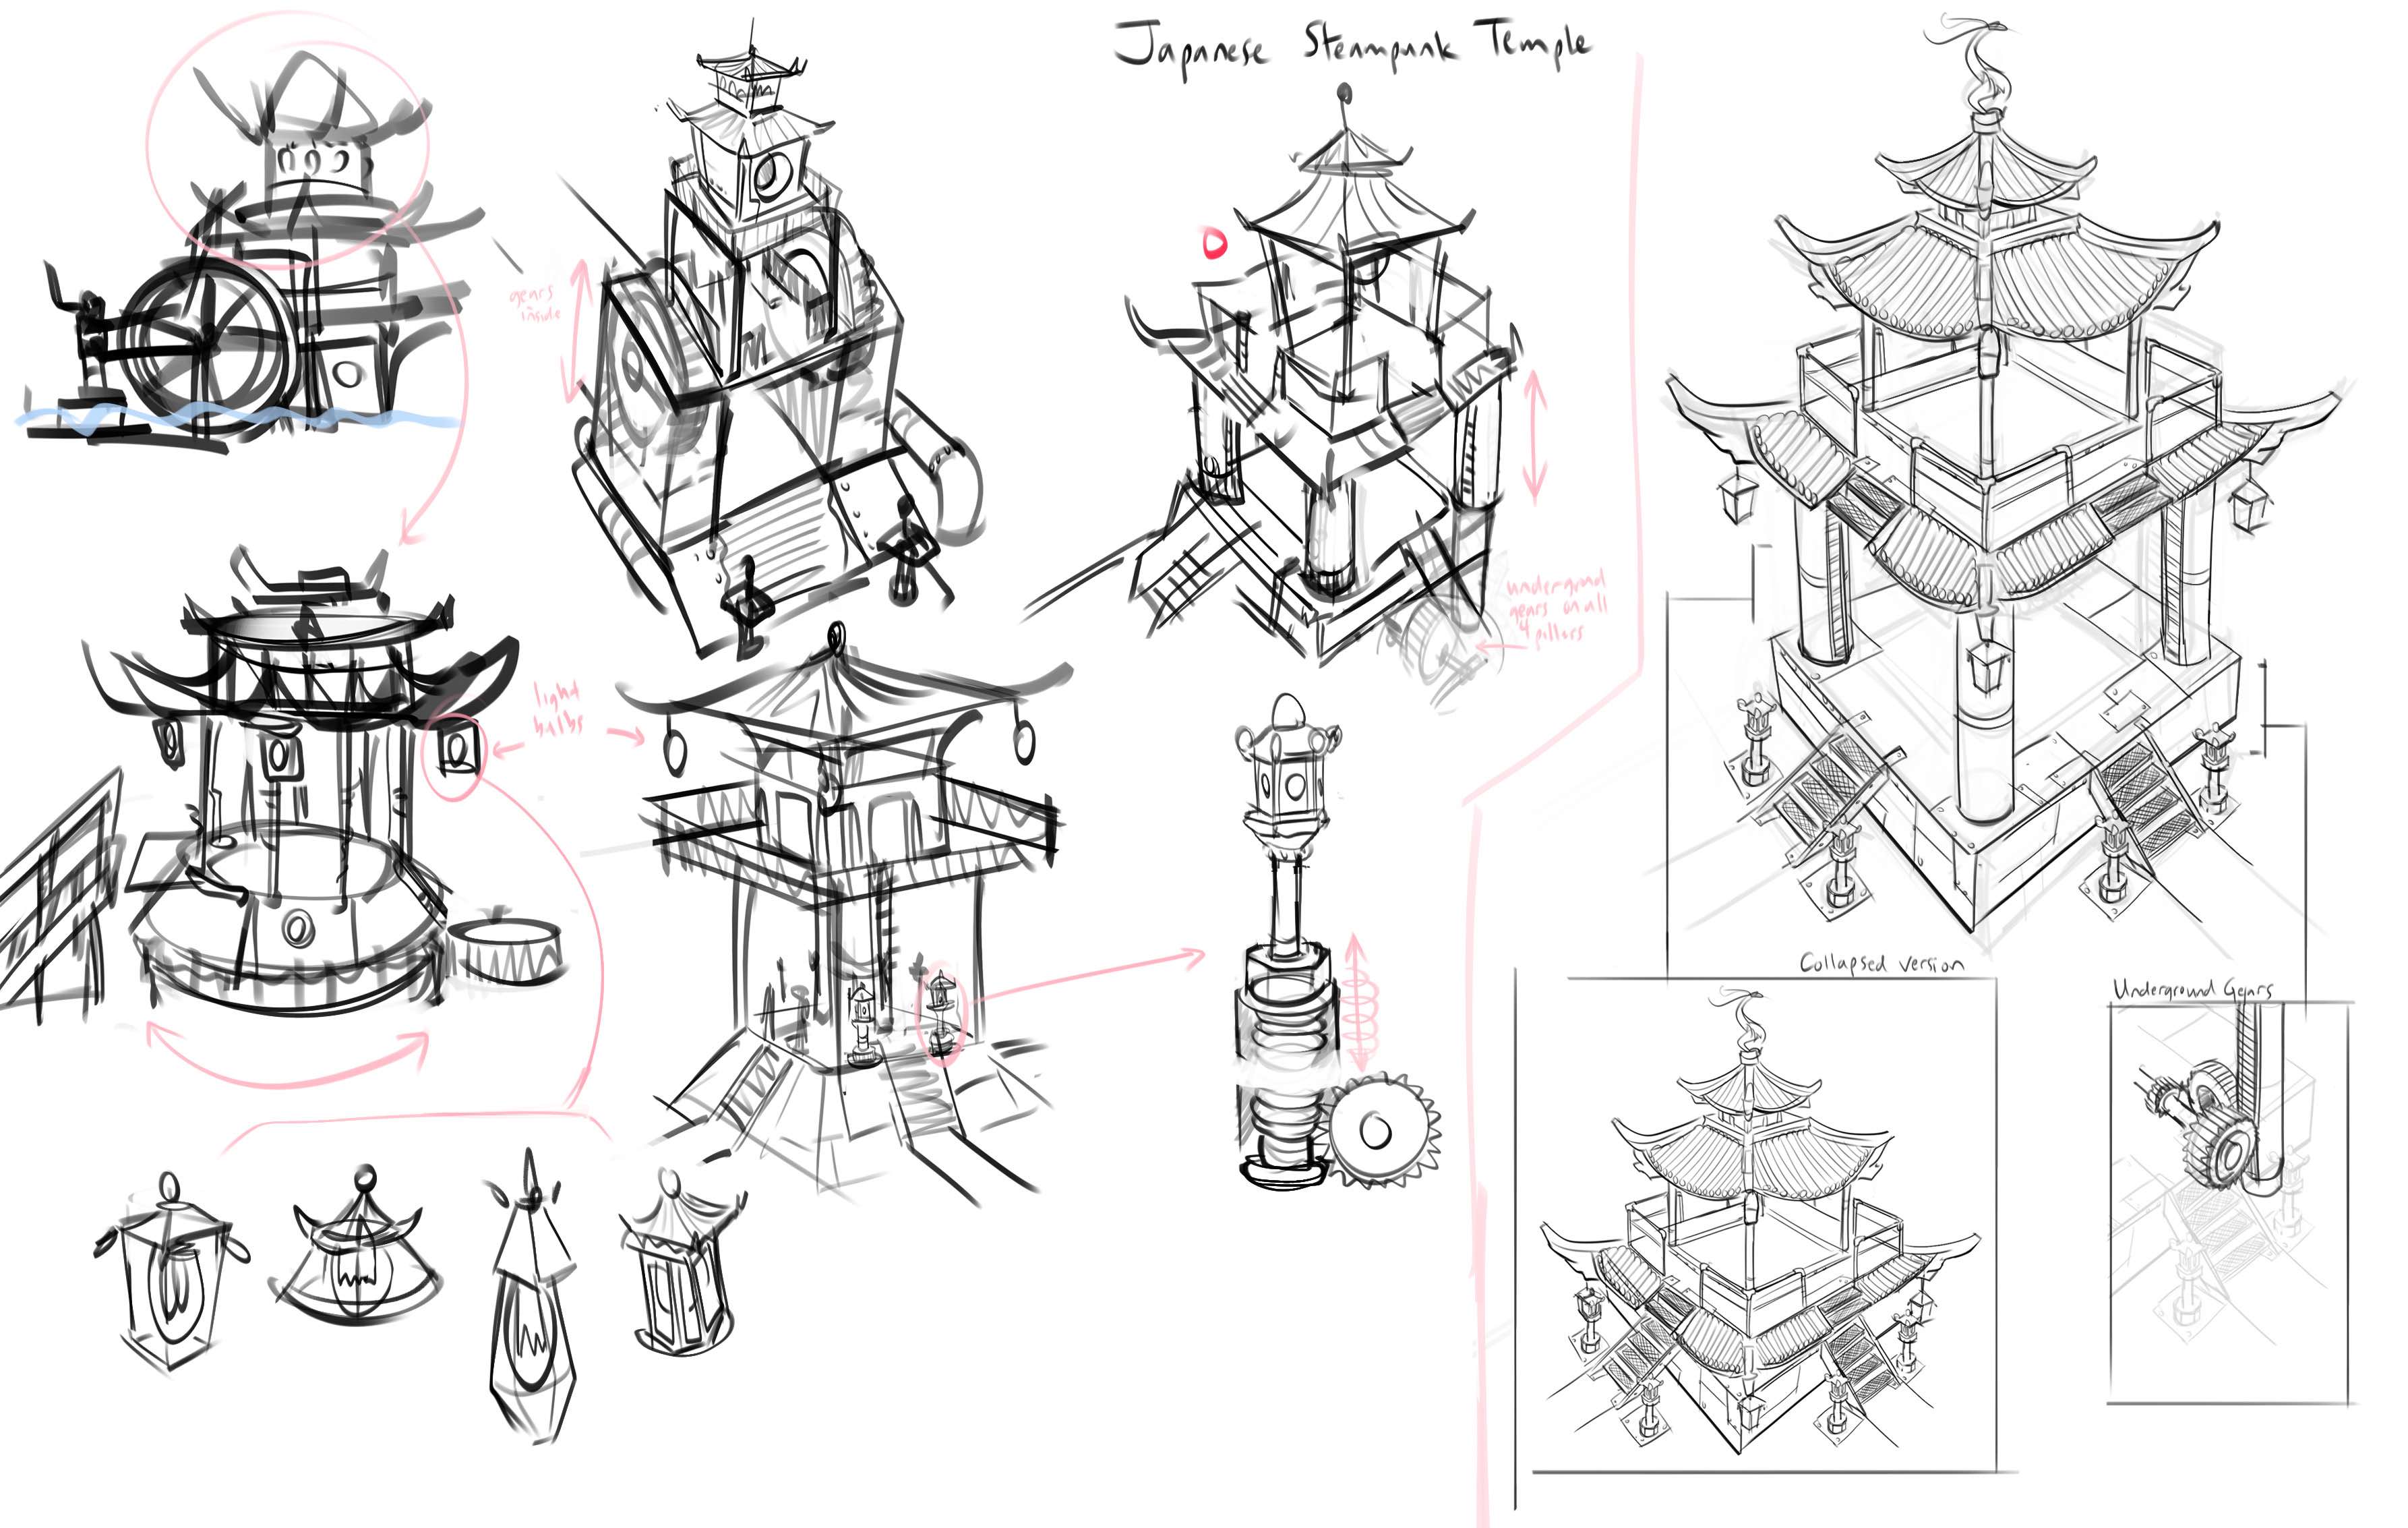 Japanese Steampunk Temple
gears
inside
underground
gears on all
4 pillars
light
bulbs
Collapsed version
Underground Gears